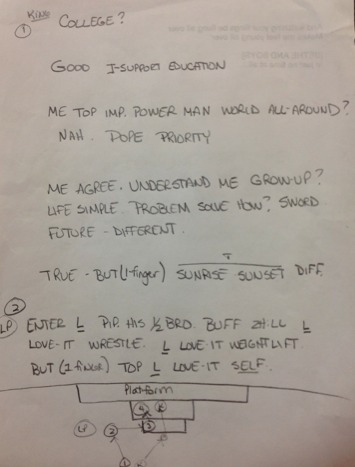 KING COLLEGE?
①
GOOD I-SUPPORT EDUCATION
ME TOP IMP. POWER MAN WORLD ALL-AROUND?
NAH. POPE PRIORITY
ME AGREE. UNDERSTAND ME GROW-UP?
LIFE SIMPLE. PROBLEM SOLVE HOW? SWORD
FUTURE - DIFFERENT.
TRUE - BUT (1-finger) SUNRISE SUNSET DIFF.
②
LP ENTER L PIP. HIS ½ BRO. BUFF
LOVE-IT WRESTLE. L LOVE IT WEIGHTLIFT.
BUT (1-finger) TOP L LOVE-IT SELF.
Platform
④ K
LP ② ③
①